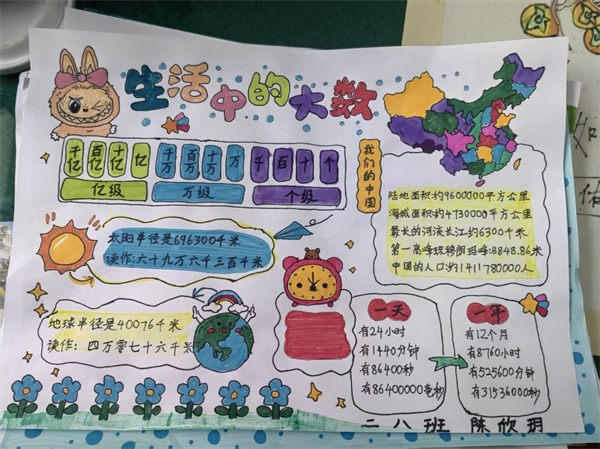 生活中的大数
千亿 百亿 十亿 亿 千万 百万 十万 万 千 百 十 个
亿级 万级 个级
我们的中国
陆地面积:约9600000平方公里
海域面积:约4730000平方公里
最长的河流长江约6300千米
第一高峰珠穆朗玛峰:8848.86米
中国的人口:约1411780000人
太阳半径是696300千米
读作:六十九万六千三百千米
地球半径是40076千米
读作:四万零七十六千米
一天
有24小时
有1440分钟
有86400秒
有86400000毫秒
一年
有12个月
有8760小时
有525600分钟
有31536000秒
二八班 陈欣玥
如
佑